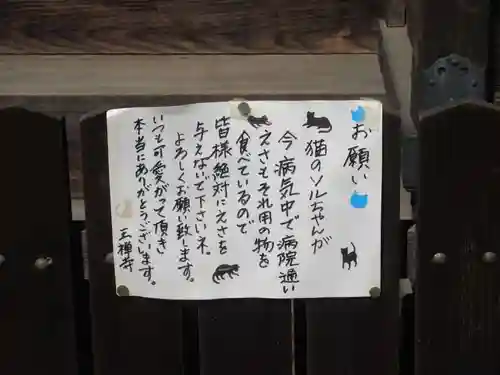 お願い
猫のソルちゃんが
今病気中で病院通い
えさもそれ用の物を
食べているので
皆様絶対にえさを
与えないで下さいネ。
よろしくお願い致します。
いつも可愛がって頂き
本当にありがとうございます。
三禅寺